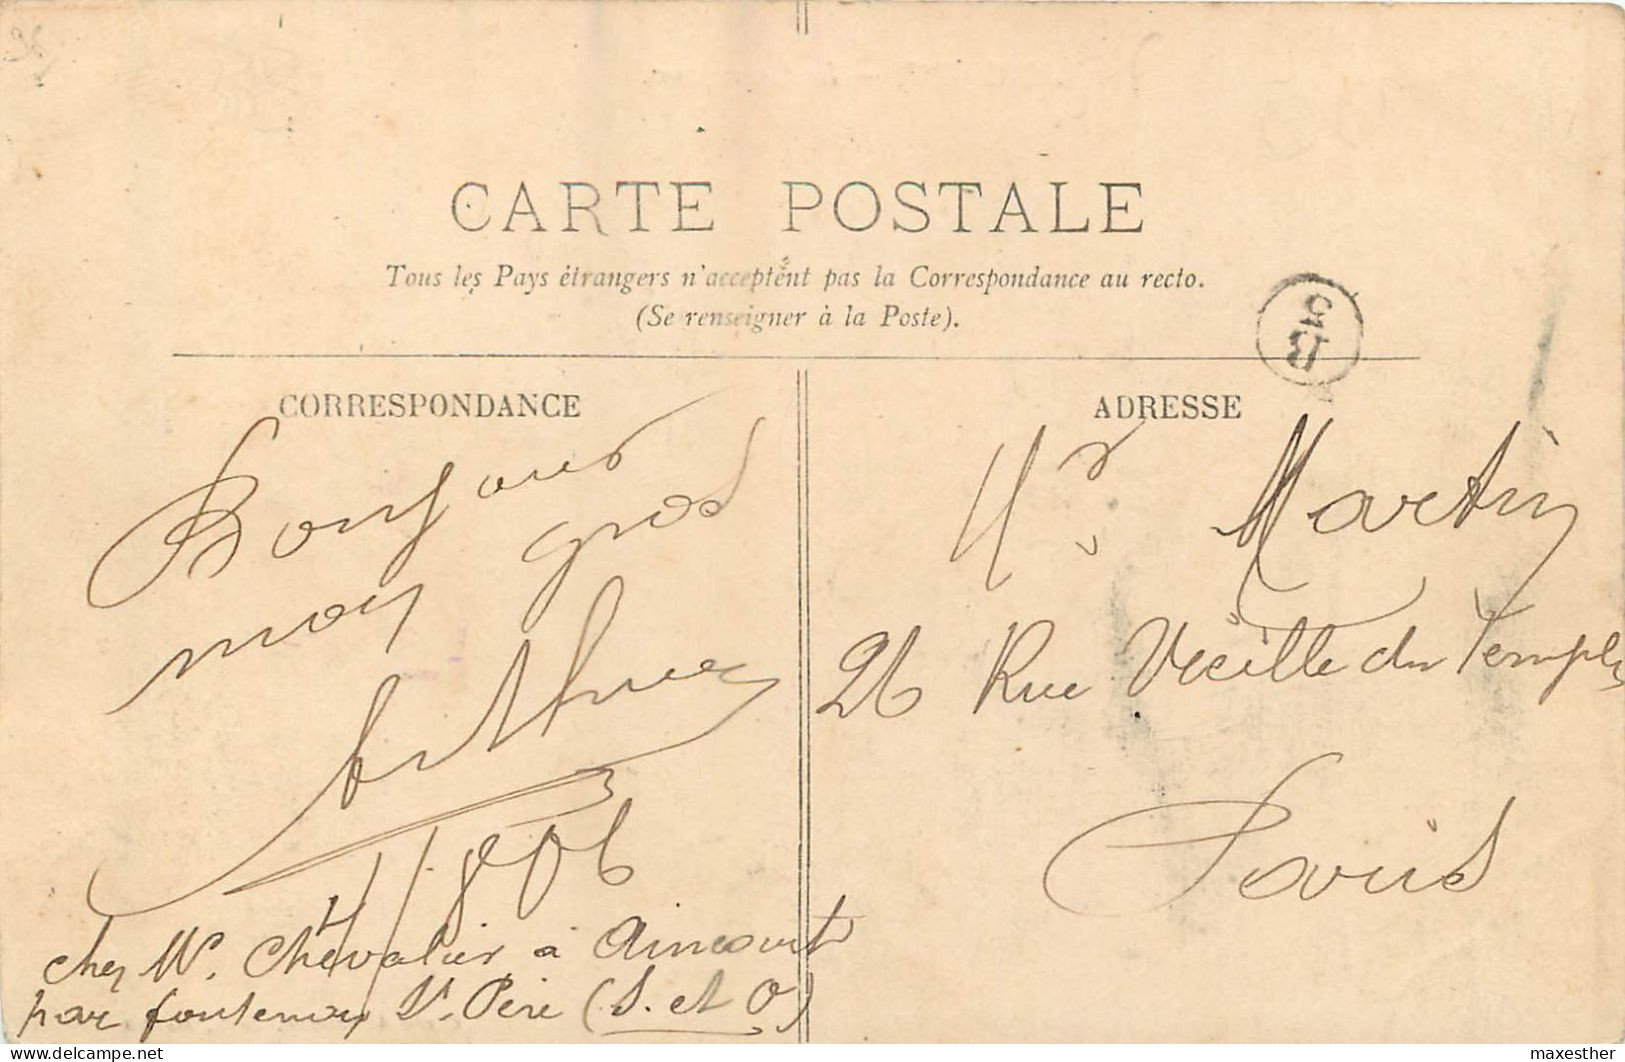 CARTE POSTALE
Tous les Pays étrangers n'acceptent pas la Correspondance au recto.
(Se renseigner à la Poste).
B
5
CORRESPONDANCE
ADRESSE
Bonjour
mon gros
Arthur
4/8 06
chez Mr. Chevalier à Aincourt
par fontenay St. Père (S. et O)
Mr. Martin
26 Rue Vieille du Temple
Paris
delcampe.net
maxesther